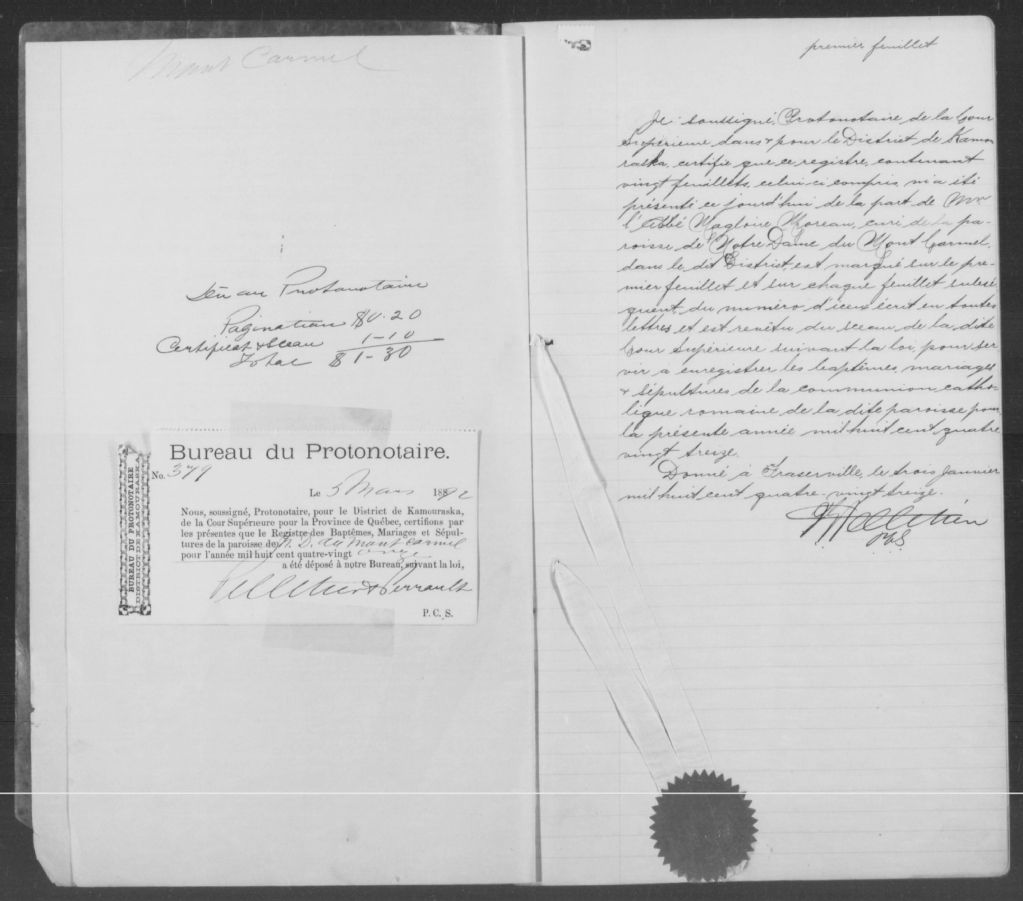 Mont Carmel
Dû au Protonotaire
Pagination $0.20
Certificat & Sceau 1-10
Total $1-30
BUREAU DU PROTONOTAIRE
DISTRICT DE KAMOURASKA
Bureau du Protonotaire.
No. 379
Le 3 Mars 1892
Nous, soussigné, Protonotaire, pour le District de Kamouraska,
de la Cour Supérieure pour la Province de Québec, certifions par
les présentes que le Registre des Baptêmes, Mariages et Sépul-
tures de la paroisse de N. D. du Mont Carmel
pour l'année mil huit cent quatre-vingt onze
a été déposé à notre Bureau, suivant la loi,
Pelletier & Perrault
P. C. S.
premier feuillet
Je soussigné, Protonotaire de la Cour
Supérieure dans & pour le District de Kamou
raska, certifie que ce registre, contenant
vingt feuillets, celui-ci compris, m'a été
présenté ce jourd'hui de la part de Mr
l'Abbé Magloire Moreau, curé de la pa-
roisse de Notre Dame du Mont Carmel,
dans le dit District, est marqué sur le pre-
mier feuillet et sur chaque feuillet subsé-
quent du numéro d'iceux écrit en toutes
lettres et est revêtu du sceau de la dite
Cour Supérieure suivant la loi, pour ser-
vir à enregistrer les baptêmes, mariages
& sépultures de la communion catho-
lique romaine de la dite paroisse pour
la présente année mil huit cent quatre
vingt treize.
Donné à Fraserville, le trois Janvier
mil huit cent quatre-vingt treize.
Pelletier
PCS